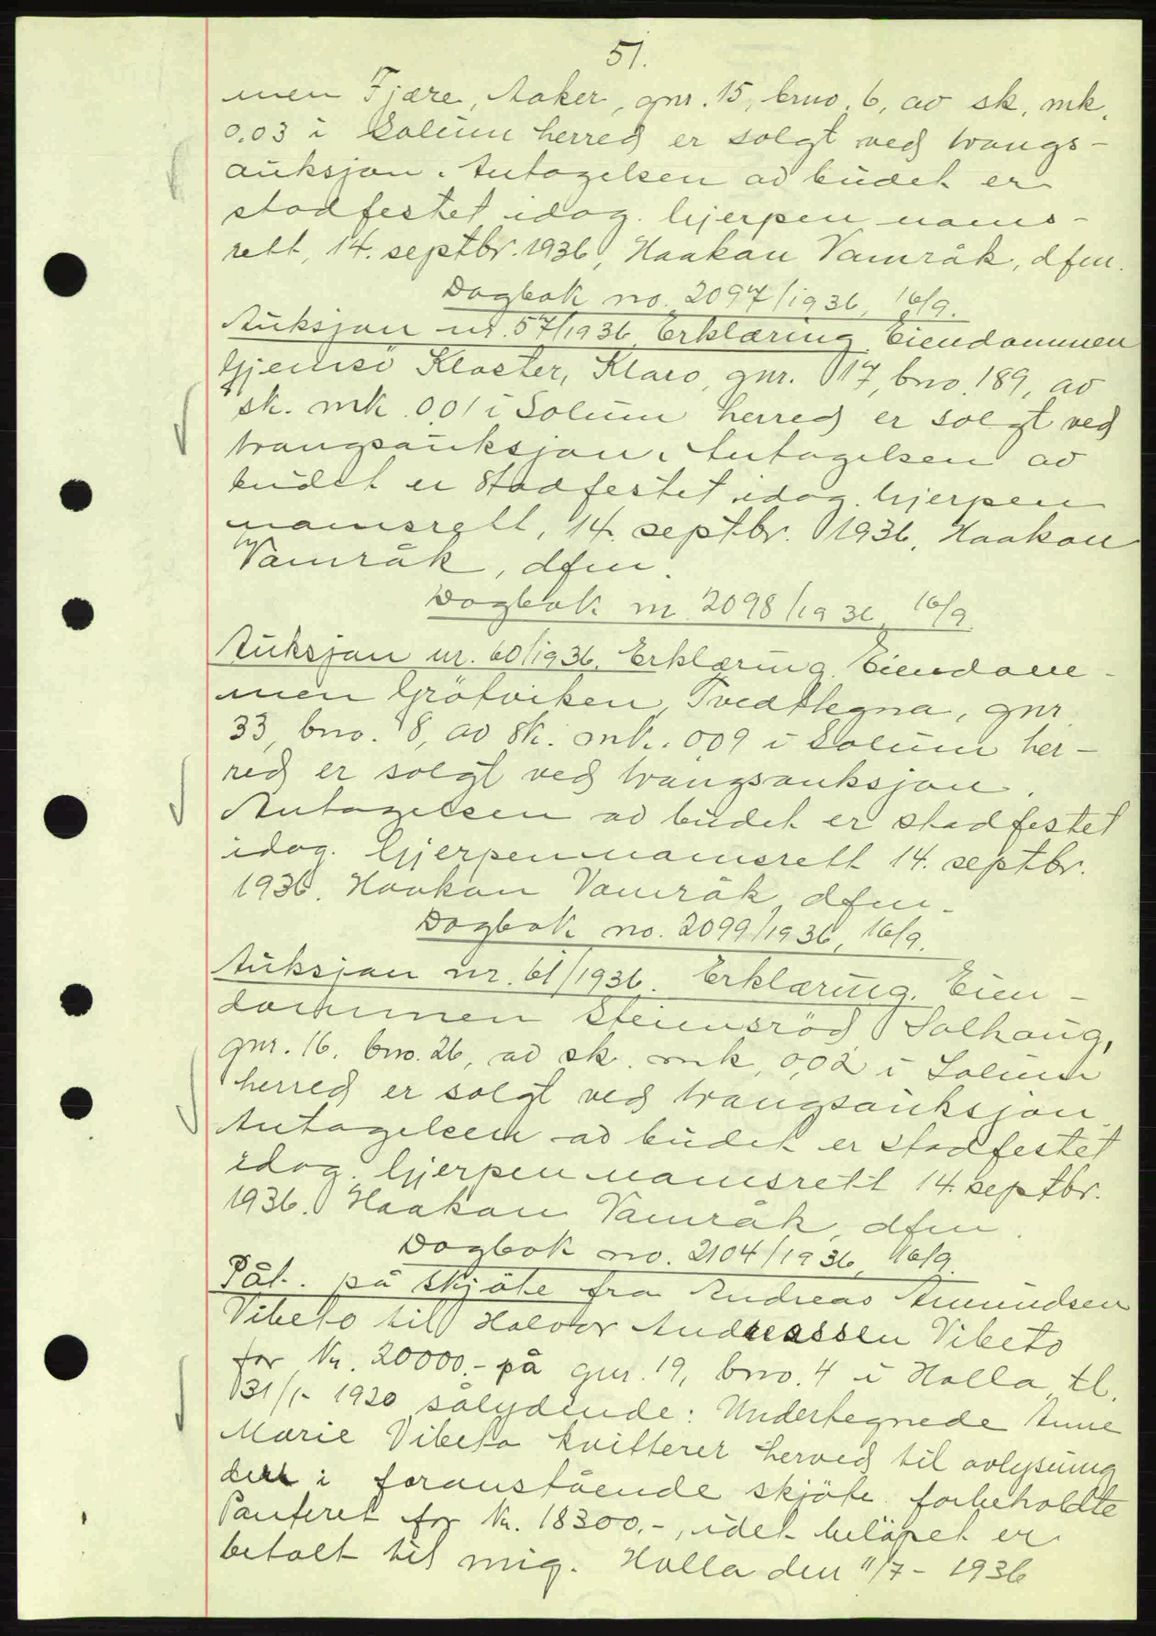 51.
men Fjære, Aaker, gnr. 15, bno. 6, av sk. mk.
0.03 i Solum herred er solgt ved tvangs-
auksjon. Antagelsen av budet er
stadfestet idag. Gjerpen nams-
rett, 14. septbr. 1936, Haakon Vamråk, dfm.
Dagbok no. 2097/1936, 16/9.
Auksjon nr. 57/1936. Erklæring. Eiendommen
Gjemsö Kloster, Klaro, gnr. 17, bno. 189, av
sk. mk. 0.01 i Solum herred er solgt ved
tvangsauksjon. Antagelsen av
budet er stadfestet idag. Gjerpen
namsrett, 14. septbr. 1936, Haakon
Vamråk, dfm.
Dagbok nr. 2098/1936, 16/9.
Auksjon nr. 60/1936. Erklæring. Eiendom-
men Grötviken, Tvedtegna, gnr.
33, bno. 8, av sk. mk. 0.09 i Solum her-
red er solgt ved tvangsauksjon.
Antagelsen av budet er stadfestet
idag. Gjerpen namsrett 14. septbr.
1936. Haakon Vamråk, dfm.
Dagbok no. 2099/1936, 16/9.
Auksjon nr. 61/1936. Erklæring. Eien-
dommen Steinsröd Solhaug,
gnr. 16, bno. 26, av sk. mk. 0,02 i Solum
herred er solgt ved tvangsauksjon.
Antagelsen av budet er stadfestet
idag. Gjerpen namsrett 14. septbr.
1936. Haakon Vamråk, dfm.
Dagbok no. 2104/1936, 16/9.
Påt. på skjöte fra Andreas Amundsen
Vibeto til Halvor Andreassen Vibeto
for Kr. 20000.- på gnr. 19, bno. 4 i Holla, tl.
31/1- 1920 sålydende: Undertegnede Anne
Marie Vibeto kvitterer herved til avlysning
den i foranstående skjöte forbeholdte
Panteret for Kr. 18300.-, idet belöpet er
betalt til mig. Holla den 11/7- 1936